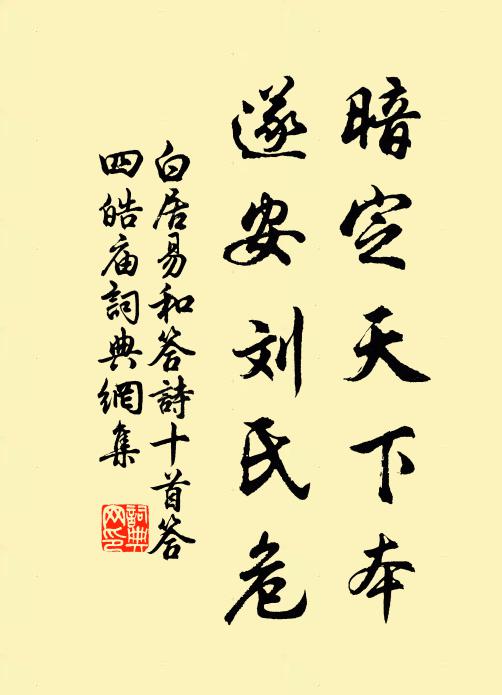 暗定天下本
遂安刘氏危
白居易和答詩十首答
四皓庙詞典網集
詞典
网印